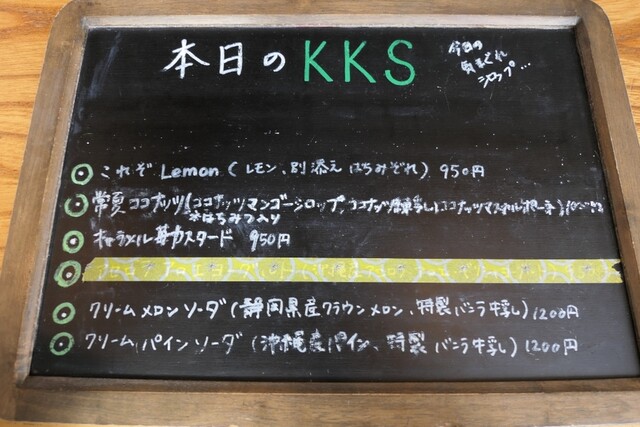 本日のKKS
今日の
気まぐれ
シロップ…
これぞ Lemon (レモン、別添え はちみぞれ) 950円
常夏ココナッツ(ココナッツマンゴーシロップ、ココナッツ練乳、ココナッツ
*はちみつ入り
キャラメル カスタード 950円
クリームメロンソーダ(静岡県産クラウンメロン、特製バニラ牛乳) 1200円
クリームパインソーダ (沖縄産パイン、特製 バニラ牛乳) 1200円